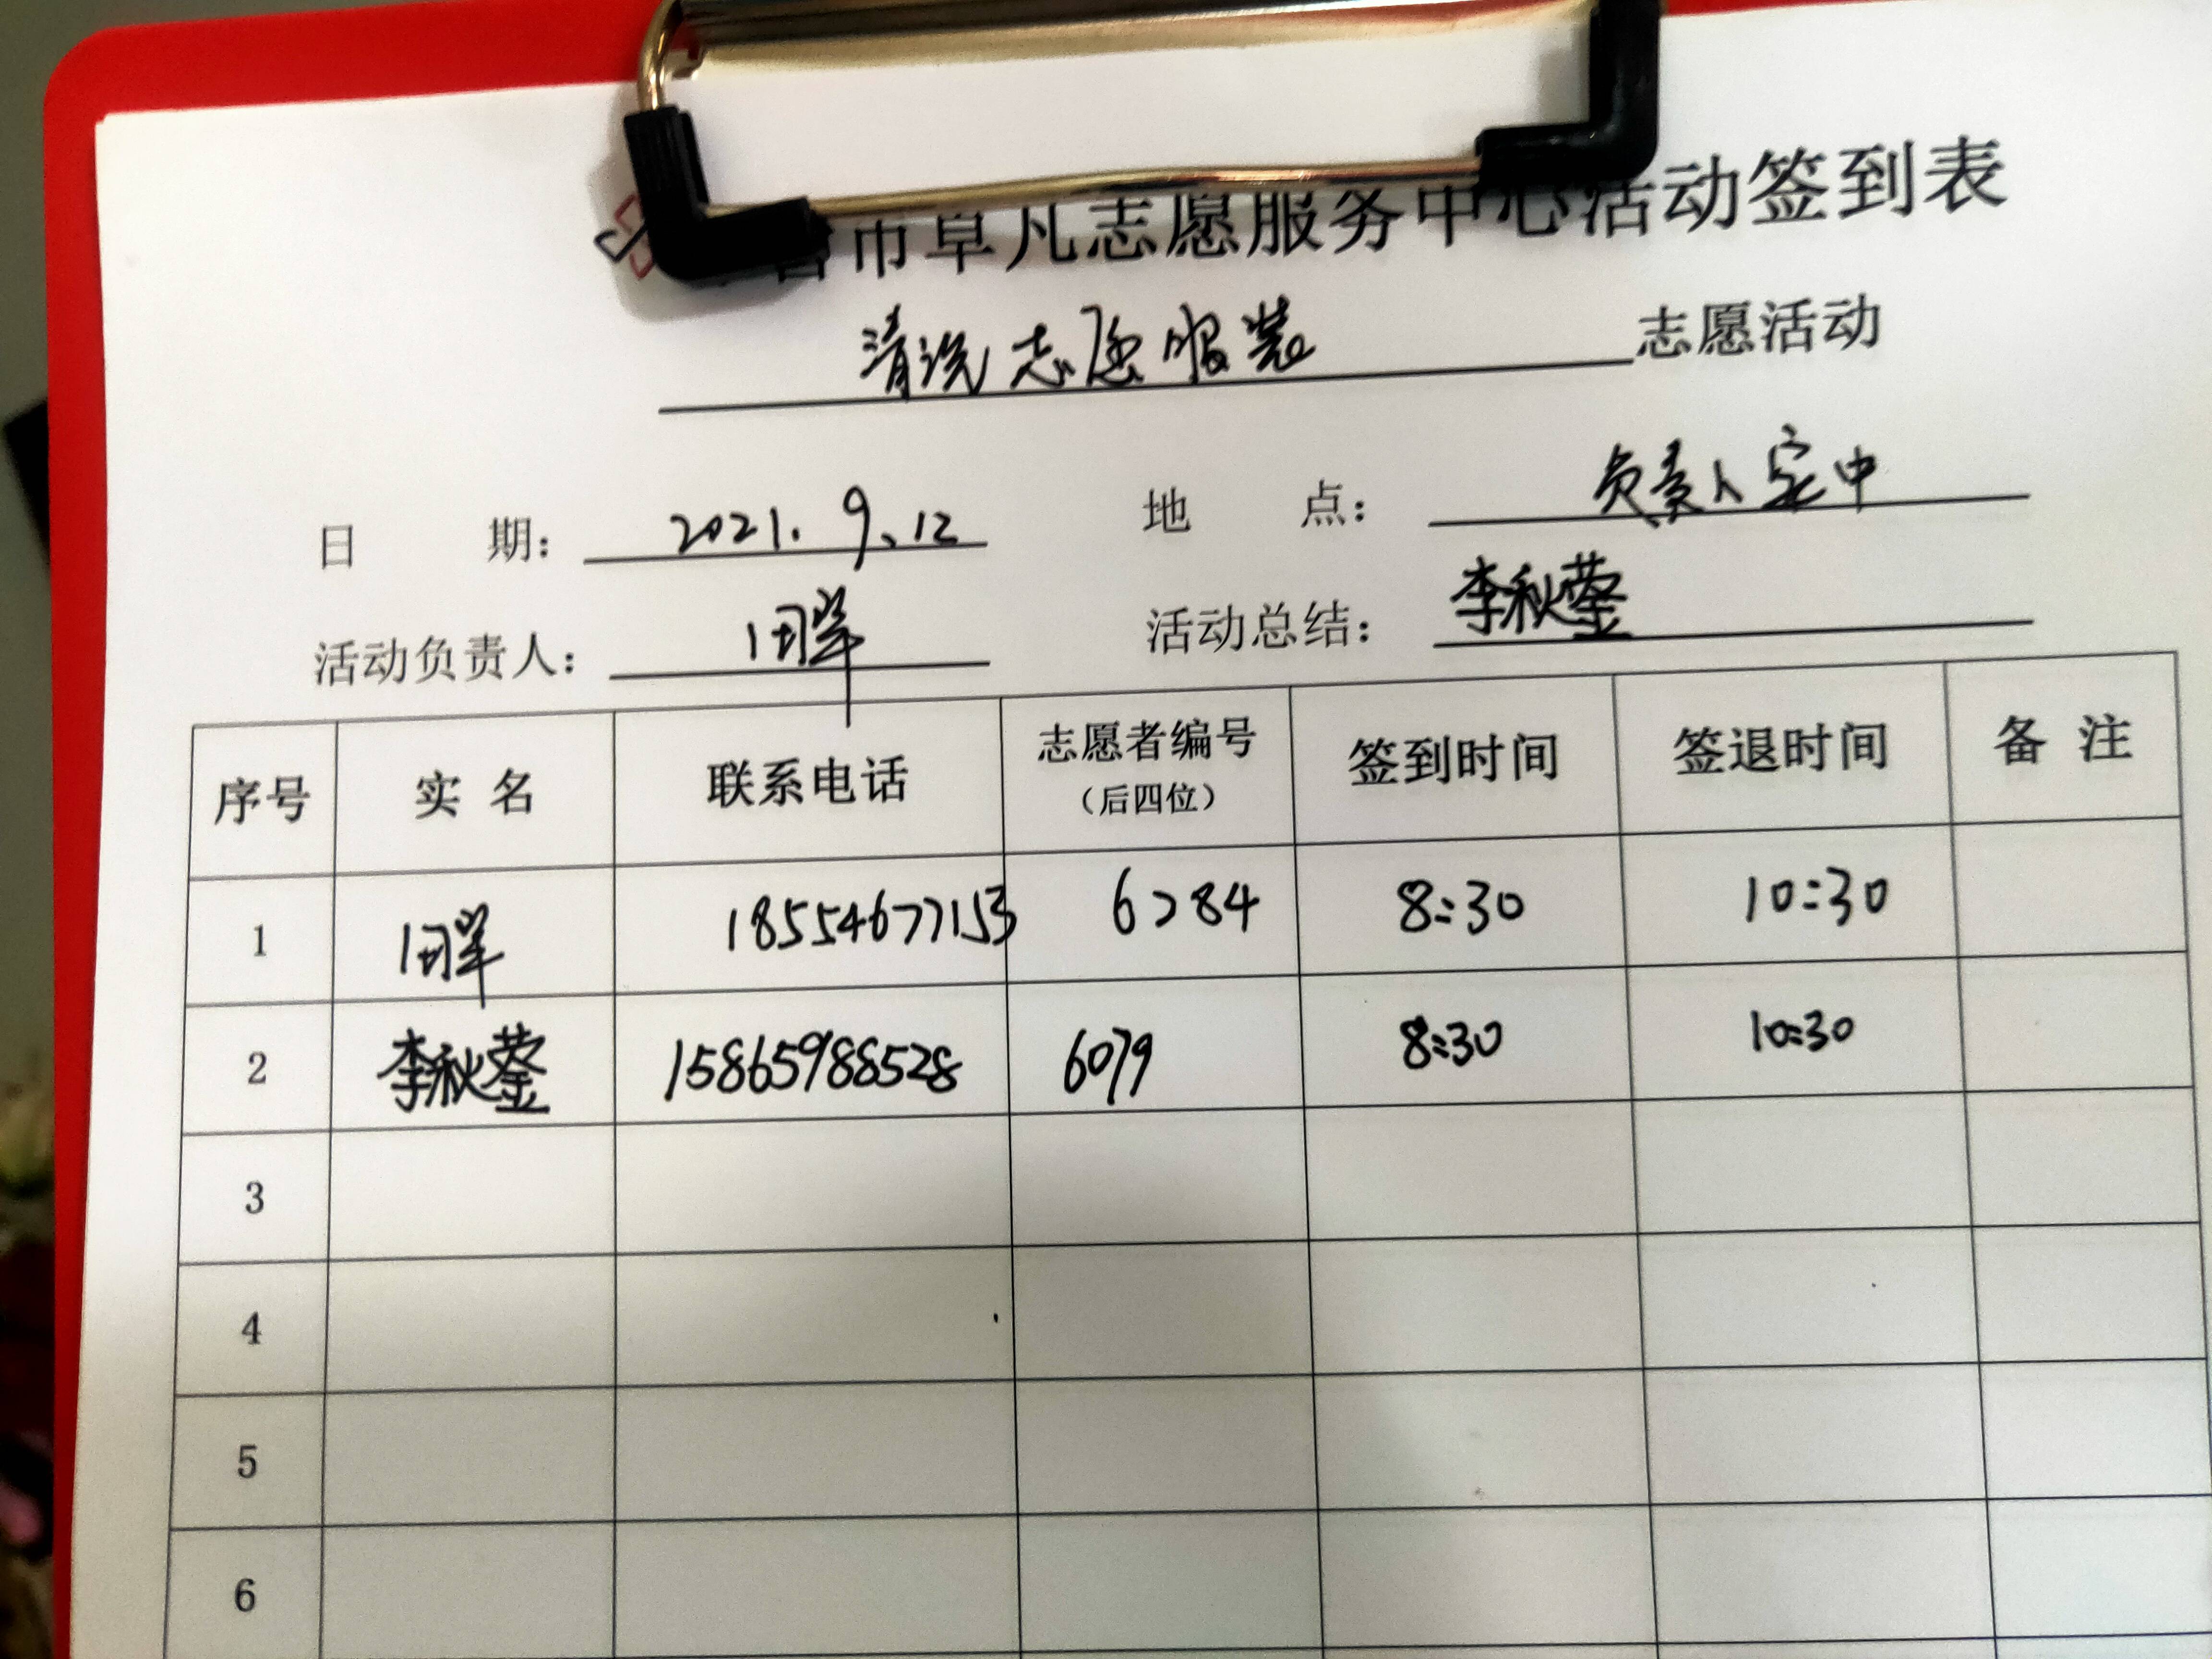 市草凡志愿服务中心活动签到表
清洗志愿服装 志愿活动
日 期: 2021.9.12 地 点: 负责人家中
活动负责人: 活动总结: 李秋蓥
序号 实 名 联系电话 志愿者编号(后四位) 签到时间 签退时间 备 注
1 18554677153 6784 8:30 10:30
2 李秋蓥 15865988528 6079 8:30 10:30
3
4
5
6